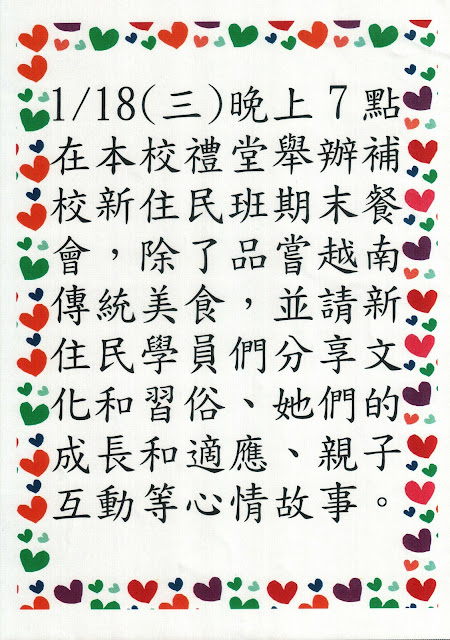 1/18(三)晚上7點
在本校禮堂舉辦補
校新住民班期末餐
會，除了品嘗越南
傳統美食，並請新
住民學員們分享文
化和習俗、她們的
成長和適應、親子
互動等心情故事。